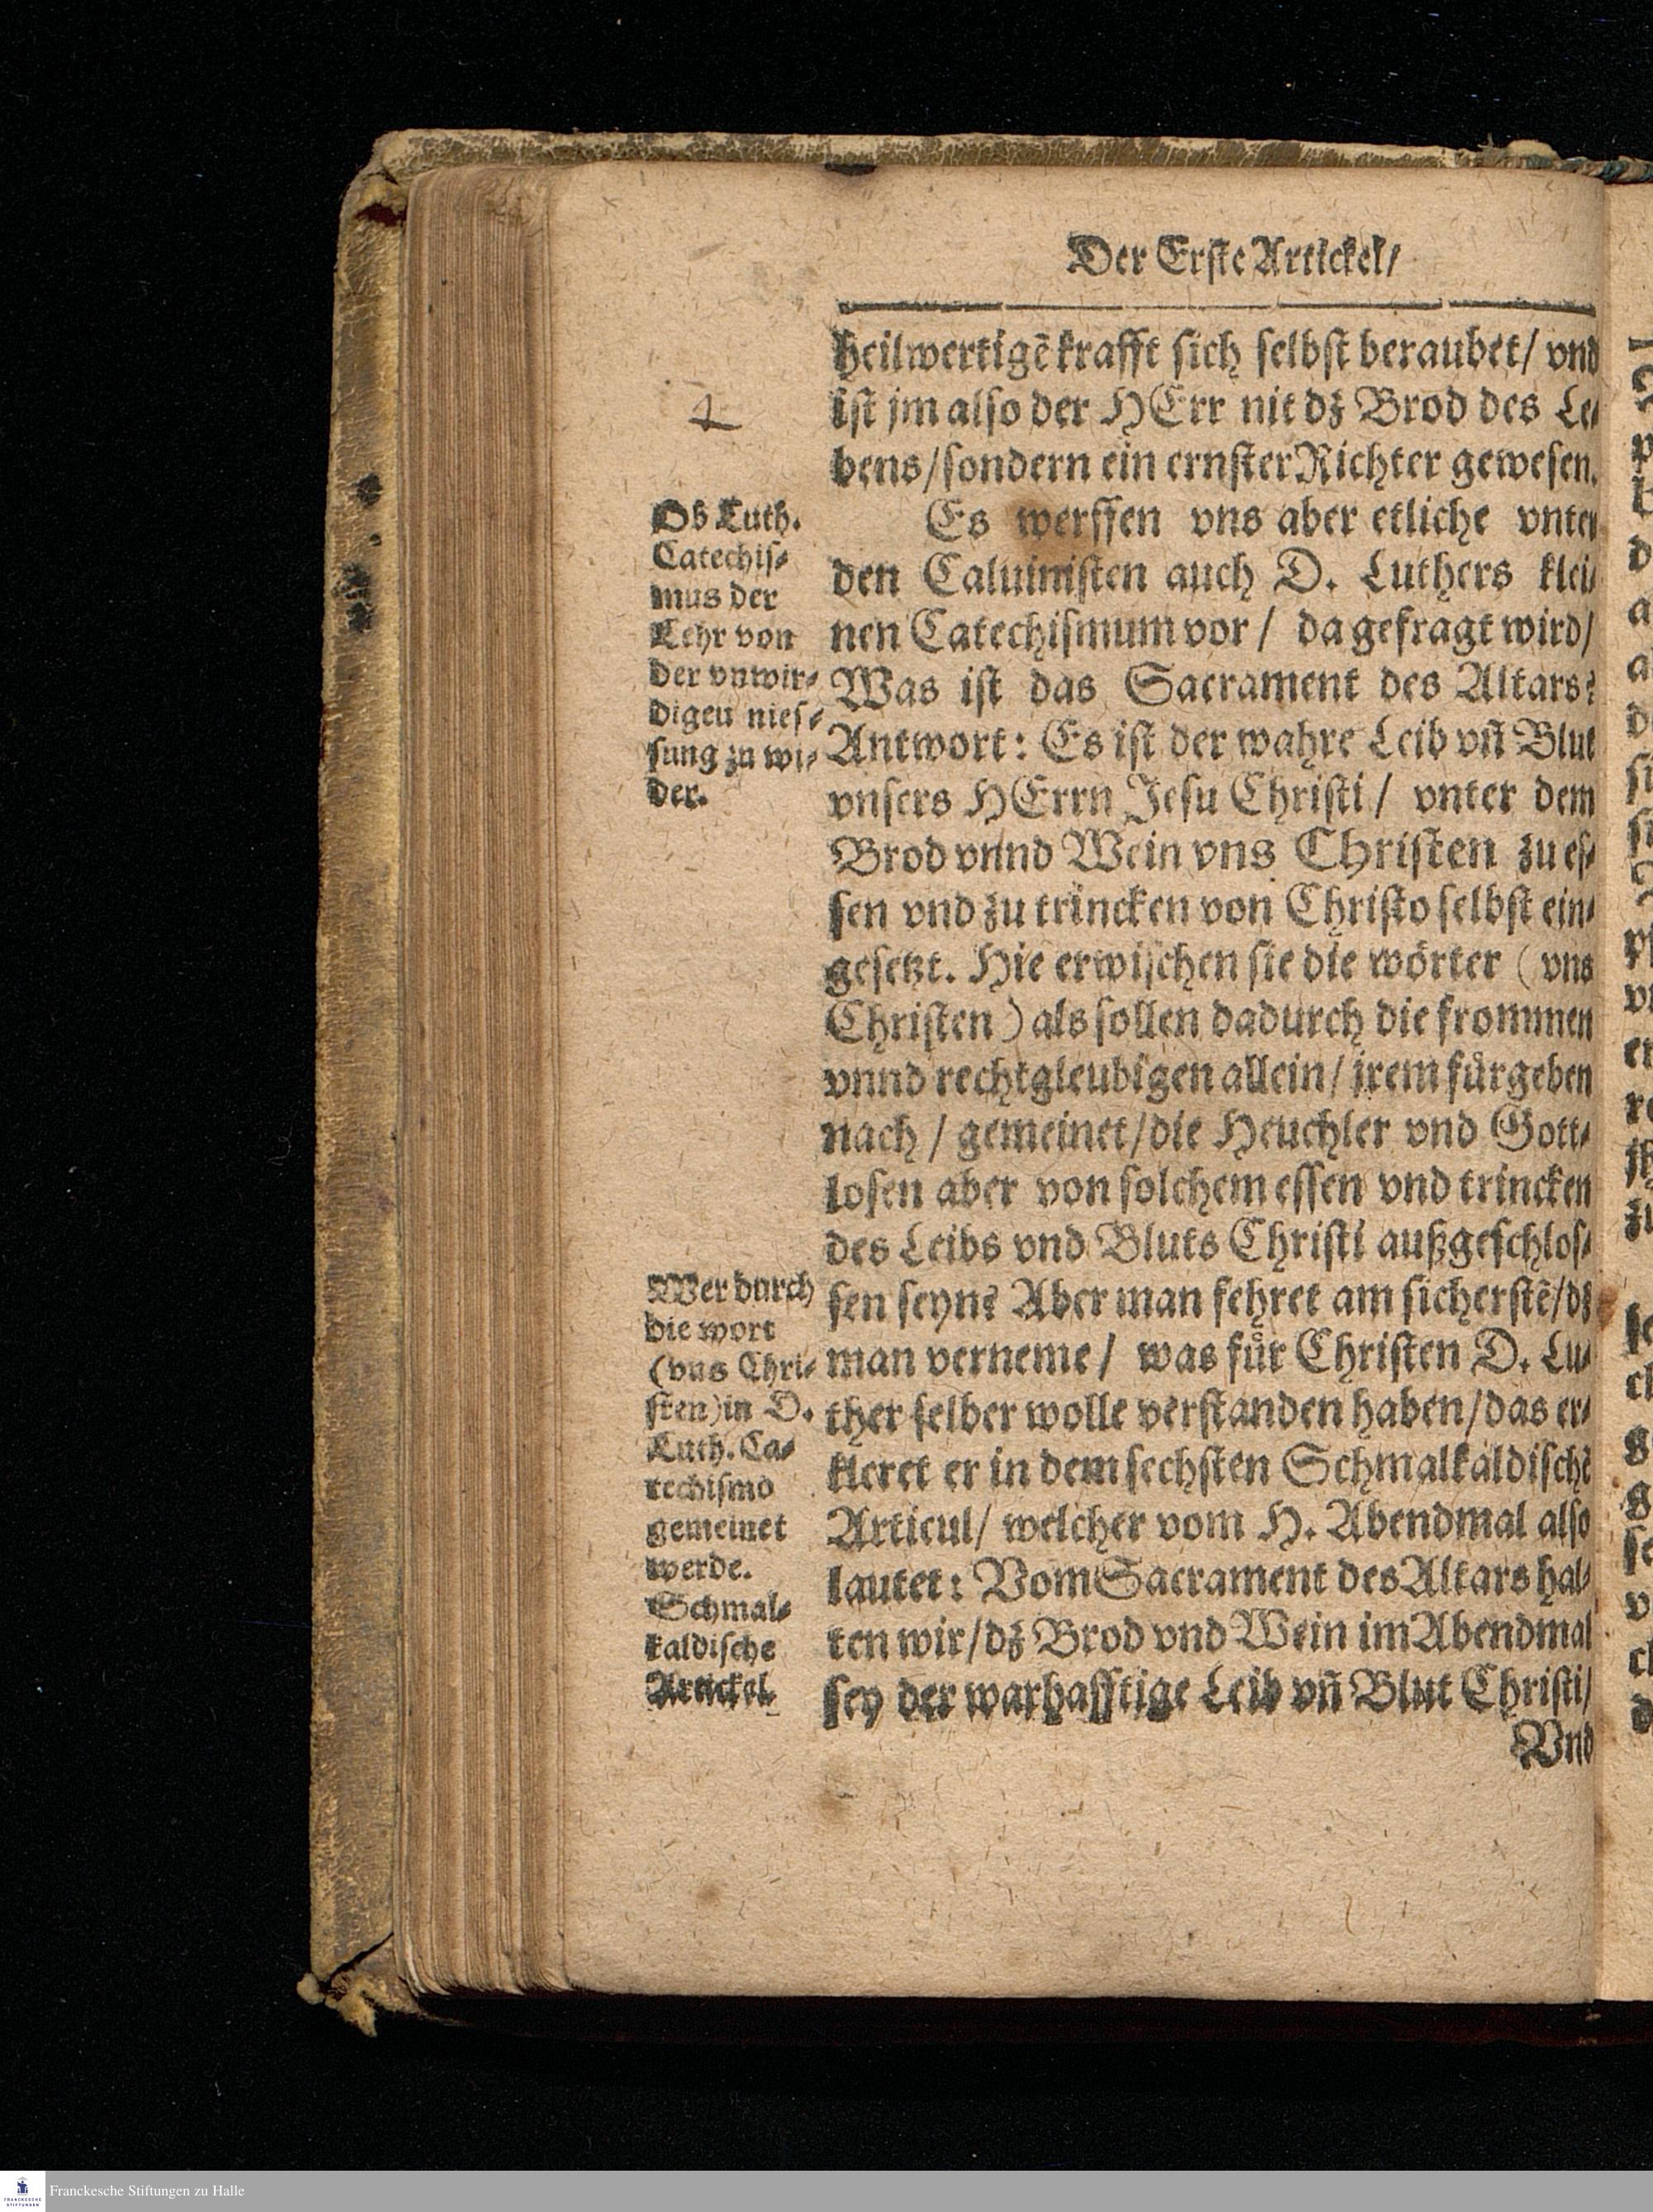 Der Erste Artickel/
heilwertigẽ krafft sich selbst beraubet/ vnd
ist jm also der HErr nit dz Brod des Le⸗
bens/ sondern ein ernster Richter gewesen.
Es werffen vns aber etliche vnter
den Caluinisten auch D. Luthers klei⸗
nen Catechismum vor / da gefragt wird/
Was ist das Sacrament des Altars?
Antwort: Es ist der wahre Leib vñ Blut
vnsers HErrn Jesu Christi / vnter dem
Brod vnnd Wein vns Christen zu es⸗
sen vnd zu trincken von Christo selbst ein⸗
gesetzt. Hie erwischen sie die wörter (vns
Christen) als sollen dadurch die frommen
vnnd rechtgleubigen allein/ jrem fürgeben
nach / gemeinet/ die Heuchler vnd Gott⸗
losen aber von solchem essen vnd trincken
des Leibs vnd Bluts Christi außgeschlos⸗
sen seyn? Aber man fehret am sicherstẽ/ dz
man verneme / was für Christen D. Lu⸗
ther selber wolle verstanden haben/ das er⸗
kleret er in dem sechsten Schmalkaldischẽ
Articul/ welcher vom H. Abendmal also
lautet: Vom Sacrament des Altars hal⸗
ten wir/ dz Brod vnd Wein im Abendmal
sey der warhafftige Leib vñ Blut Christi/
Vnd
Ob Luth.
Catechis⸗
mus der
Lehr von
der vnwir⸗
digen nies⸗
sung zu wi⸗
der.
Wer durch
die wort
(vns Chri⸗
sten) in D.
Luth. Ca⸗
techismo
gemeinet
werde.
Schmal⸗
kaldische
Artickel.
Franckesche Stiftungen zu Halle
FRANCKESCHE
STIFTUNGEN